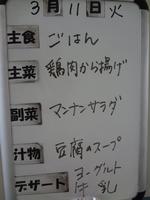 3月11日火
主食 ごはん
主菜 鶏肉から揚げ
副菜 マンナンサラダ
汁物 豆腐のスープ
デザート ヨーグルト
牛乳